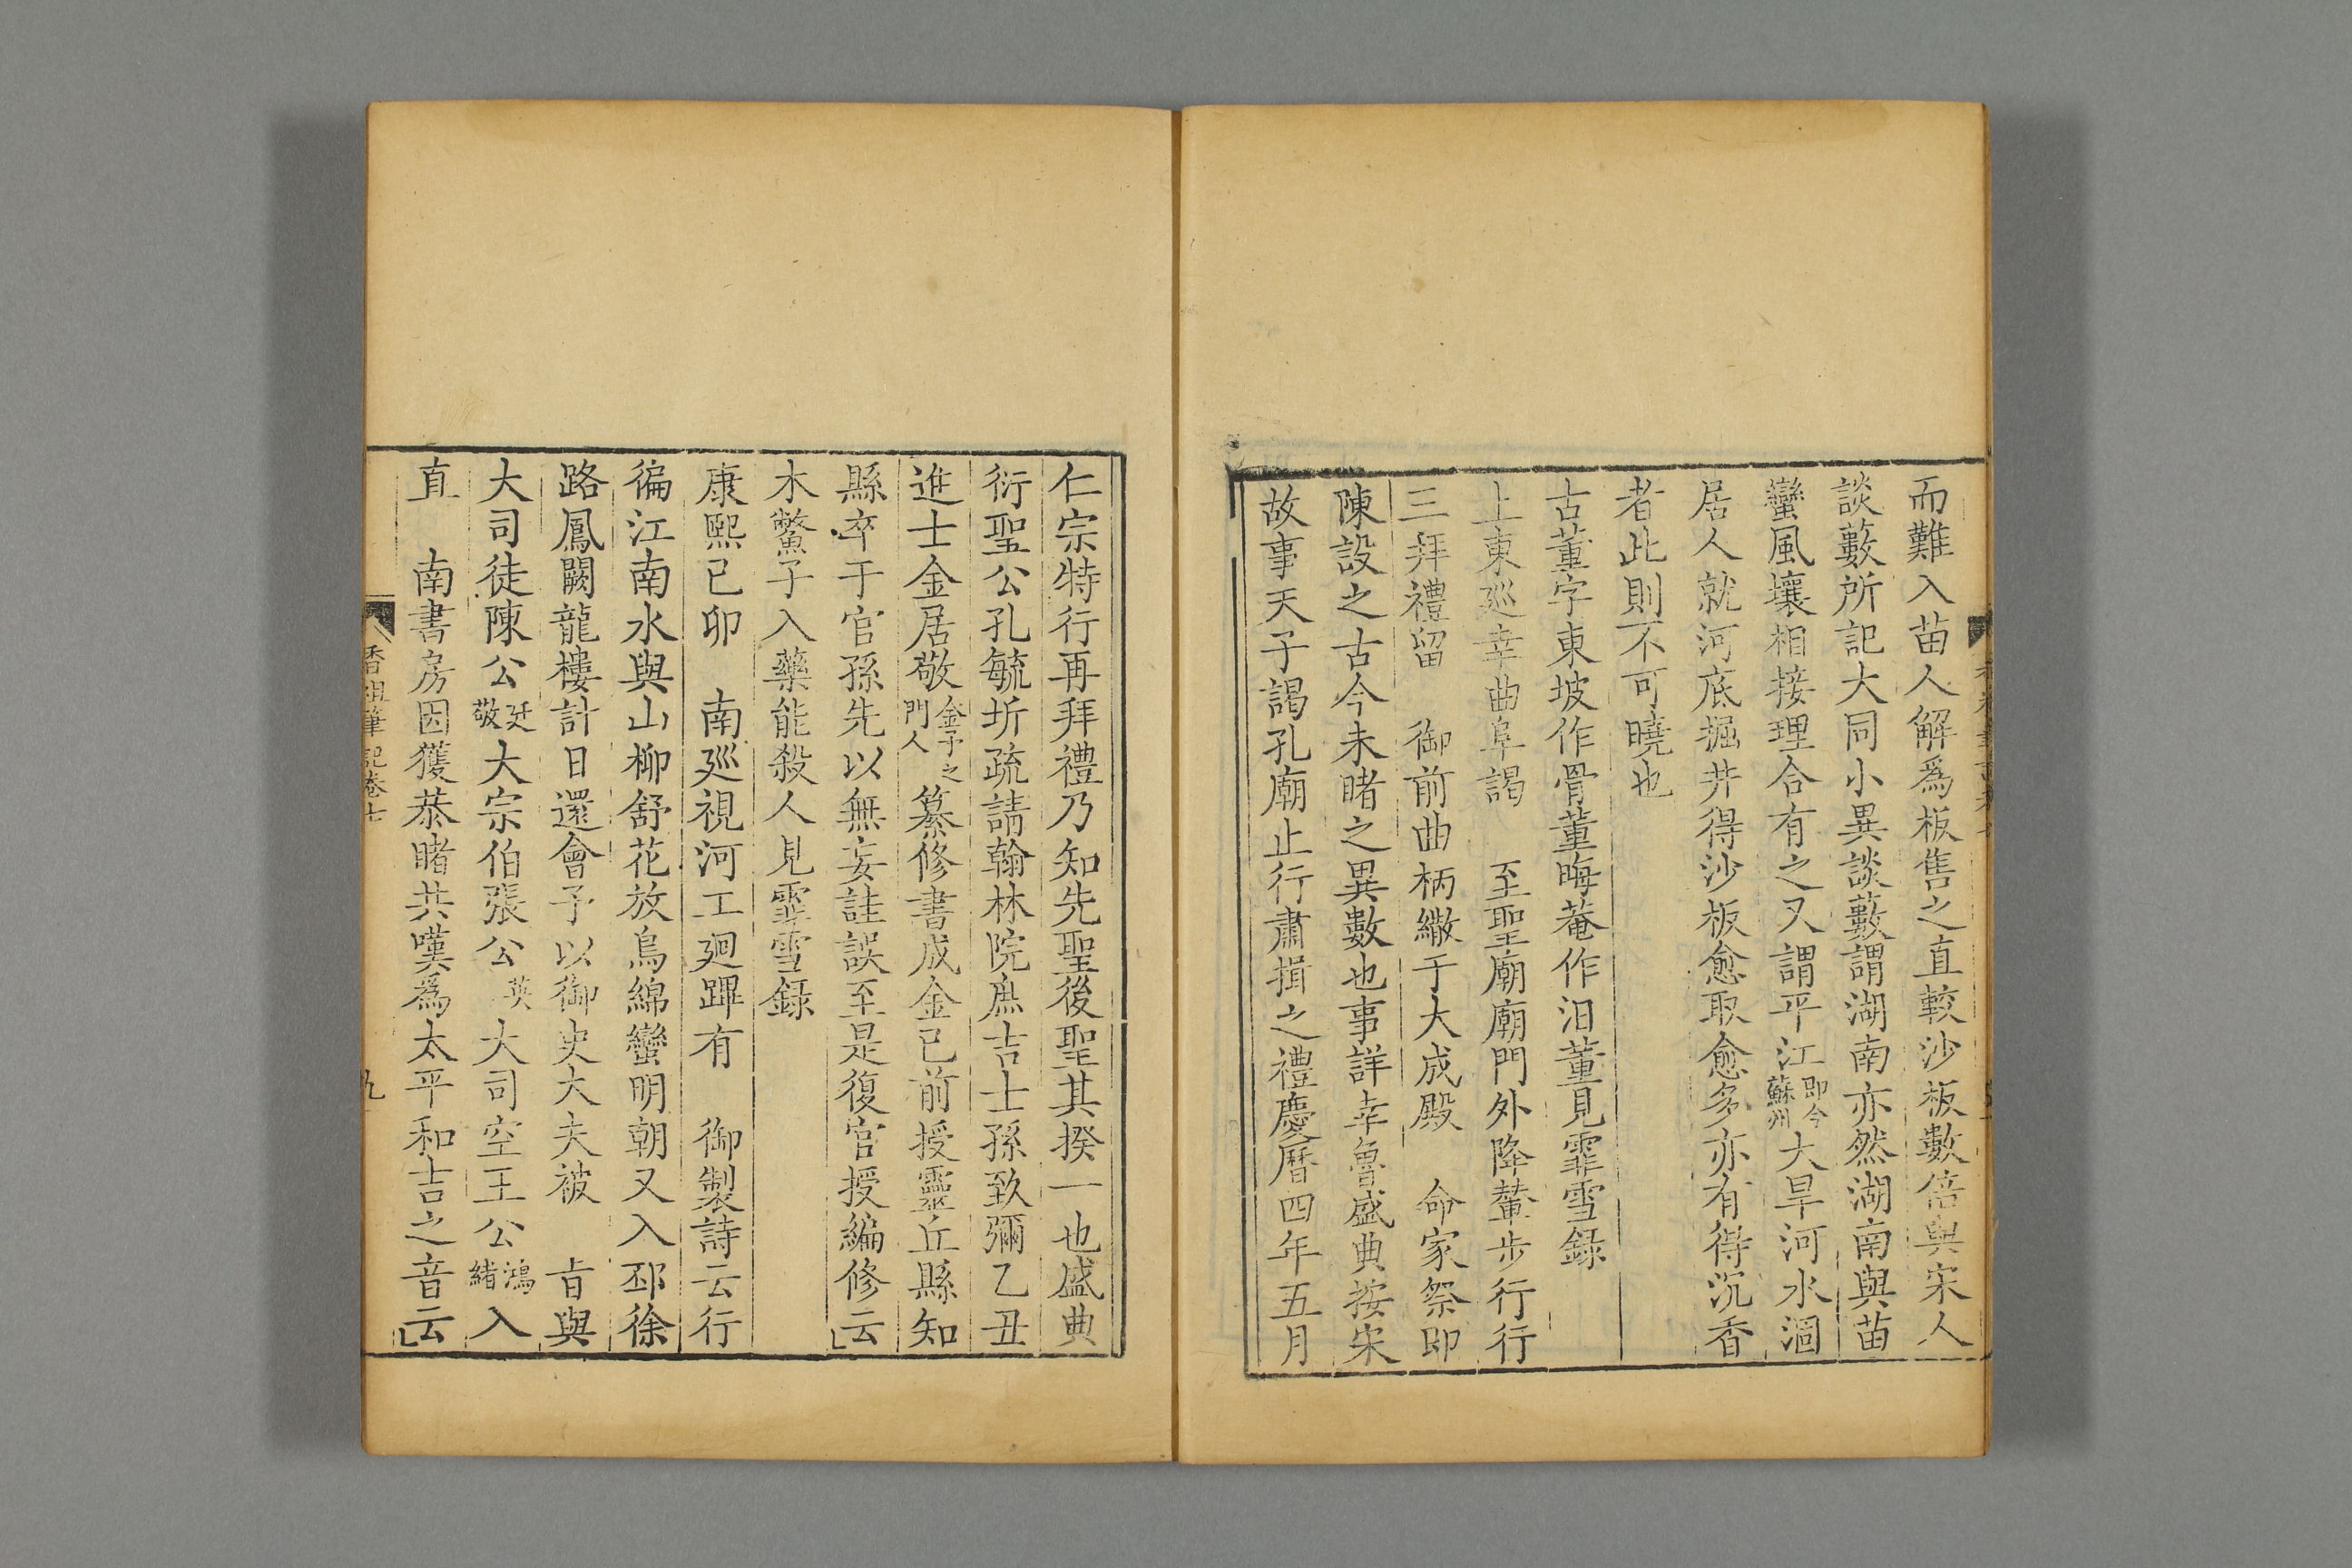 而難入苗人解爲板售之直較沙板數倍與宋人
談藪所記大同小異談藪謂湖南亦然湖南與苗
蠻風壤相接理合有之又謂平江即今蘇州大旱河水涸
居人就河底掘井得沙板愈取愈多亦有得沉香
者此則不可曉也
古董字東坡作骨董晦菴作汨董見霏雪錄
上東廵幸曲阜謁　至聖廟廟門外降輦步行行
三拜禮留　御前曲柄繖于大成殿　命家祭即
陳設之古今未睹之異數也事詳幸魯盛典按宋
故事天子謁孔廟止行肅揖之禮慶曆四年五月
仁宗特行再拜禮乃知先聖後聖其揆一也盛典
衍聖公孔毓圻疏請翰林院庶吉士孫致彌乙丑
進士金居敬金予之門人纂修書成金已前授靈丘縣知
縣卒于官孫先以無妄詿誤至是復官授編修云
木鱉子入藥能殺人見霏雪錄
康熙已卯　南廵視河工廻蹕有　御製詩云行
徧江南水與山柳舒花放鳥綿蠻明朝又入邳徐
路鳳闕龍樓計日還會予以御史大夫被　㫖與
大司徒陳公廷敬大宗伯張公英大司空王公鴻緒入
直　南書房因獲恭睹共嘆爲太平和吉之音云
香祖筆記卷七
九